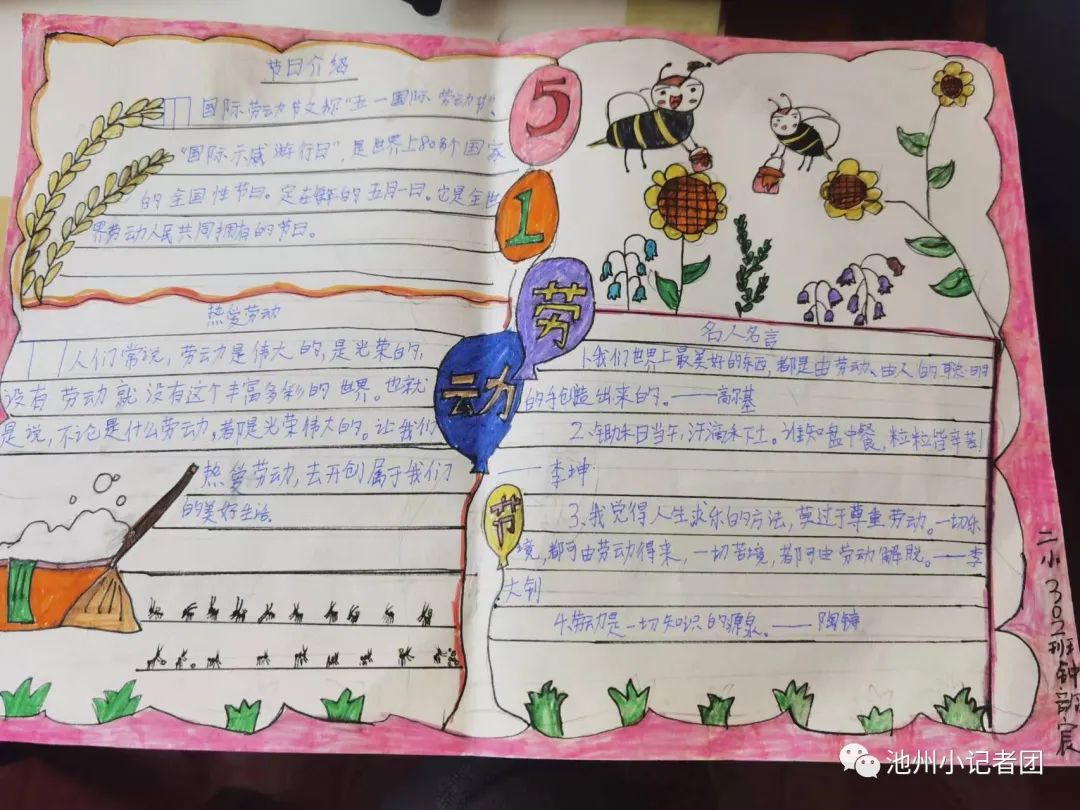 节日介绍
国际劳动节又称“五一国际劳动节”、
“国际示威游行日”，是世界上80多个国家
的全国性节日。定在每年的五月一日。它是全世
界劳动人民共同拥有的节日。
热爱劳动
人们常说，劳动是伟大的，是光荣的，
没有劳动就没有这个丰富多彩的世界。也就
是说，不论是什么劳动，都是光荣伟大的。让我们
热爱劳动，去开创属于我们
的美好生活.
5
1
劳
动
节
名人名言
1.我们世界上最美好的东西，都是由劳动、由人的聪明
的手创造出来的。——高尔基
2、锄禾日当午，汗滴禾下土。谁知盘中餐，粒粒皆辛苦!
——李坤
3、我觉得人生求乐的方法，莫过于尊重劳动。一切乐
境，都可由劳动得来，一切苦境，都可由劳动解脱。——李
大钊
4.劳动是一切知识的源泉。——陶铸
二小302班钟宸
池州小记者团